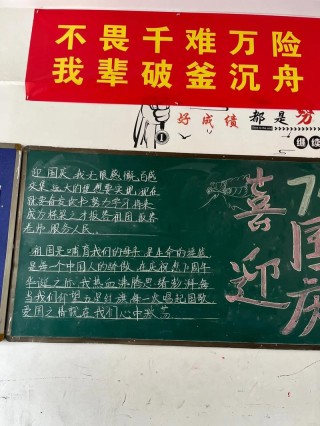 不畏千难万险
我辈破釜沉舟
好成绩 都是
继续
迎国庆 我无限感慨,百感
交集 远大的理想要实现,现在
就要奋发吹牛努力学习将来
成为栋梁之才报答祖国 报答
老师 服务人民
祖国是哺育我们的母亲 是生命的
是每一个中国人的骄傲 在庆祝您71周年
华诞之际,我热血沸腾思绪澎湃每
当我们仰望五星红旗每一次唱起国歌,
爱国之情就在我们心中激荡
喜迎
国庆